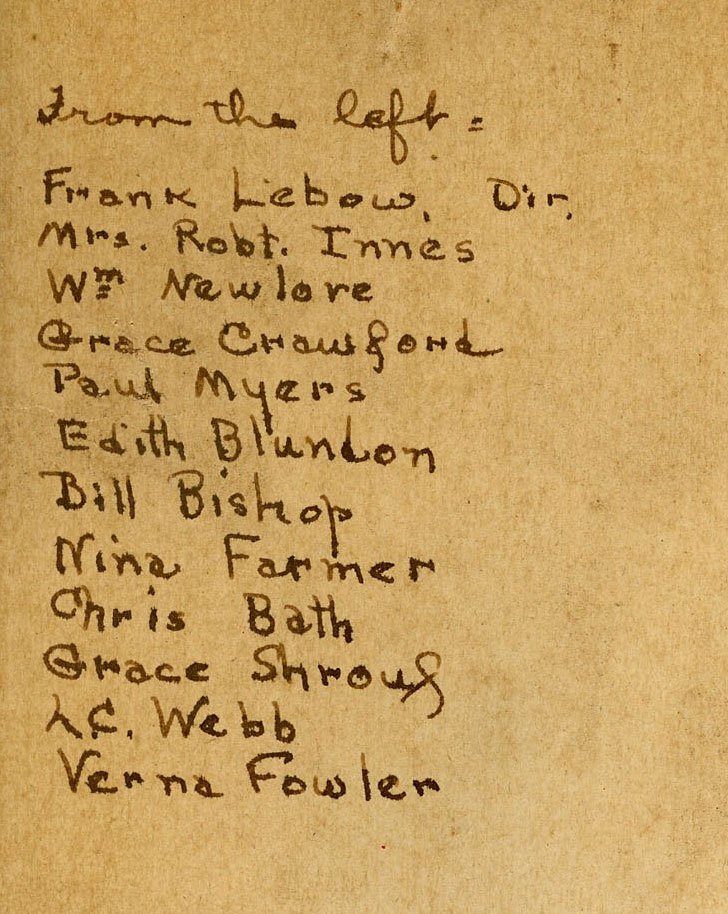 From the left =
Frank Lebow, Dir.
Mrs. Robt. Innes
Wm Newlove
Grace Crawford
Paul Myers
Edith Blundon
Bill Bishop
Nina Farmer
Chris Bath
Grace Shrouf
L.C. Webb
Verna Fowler